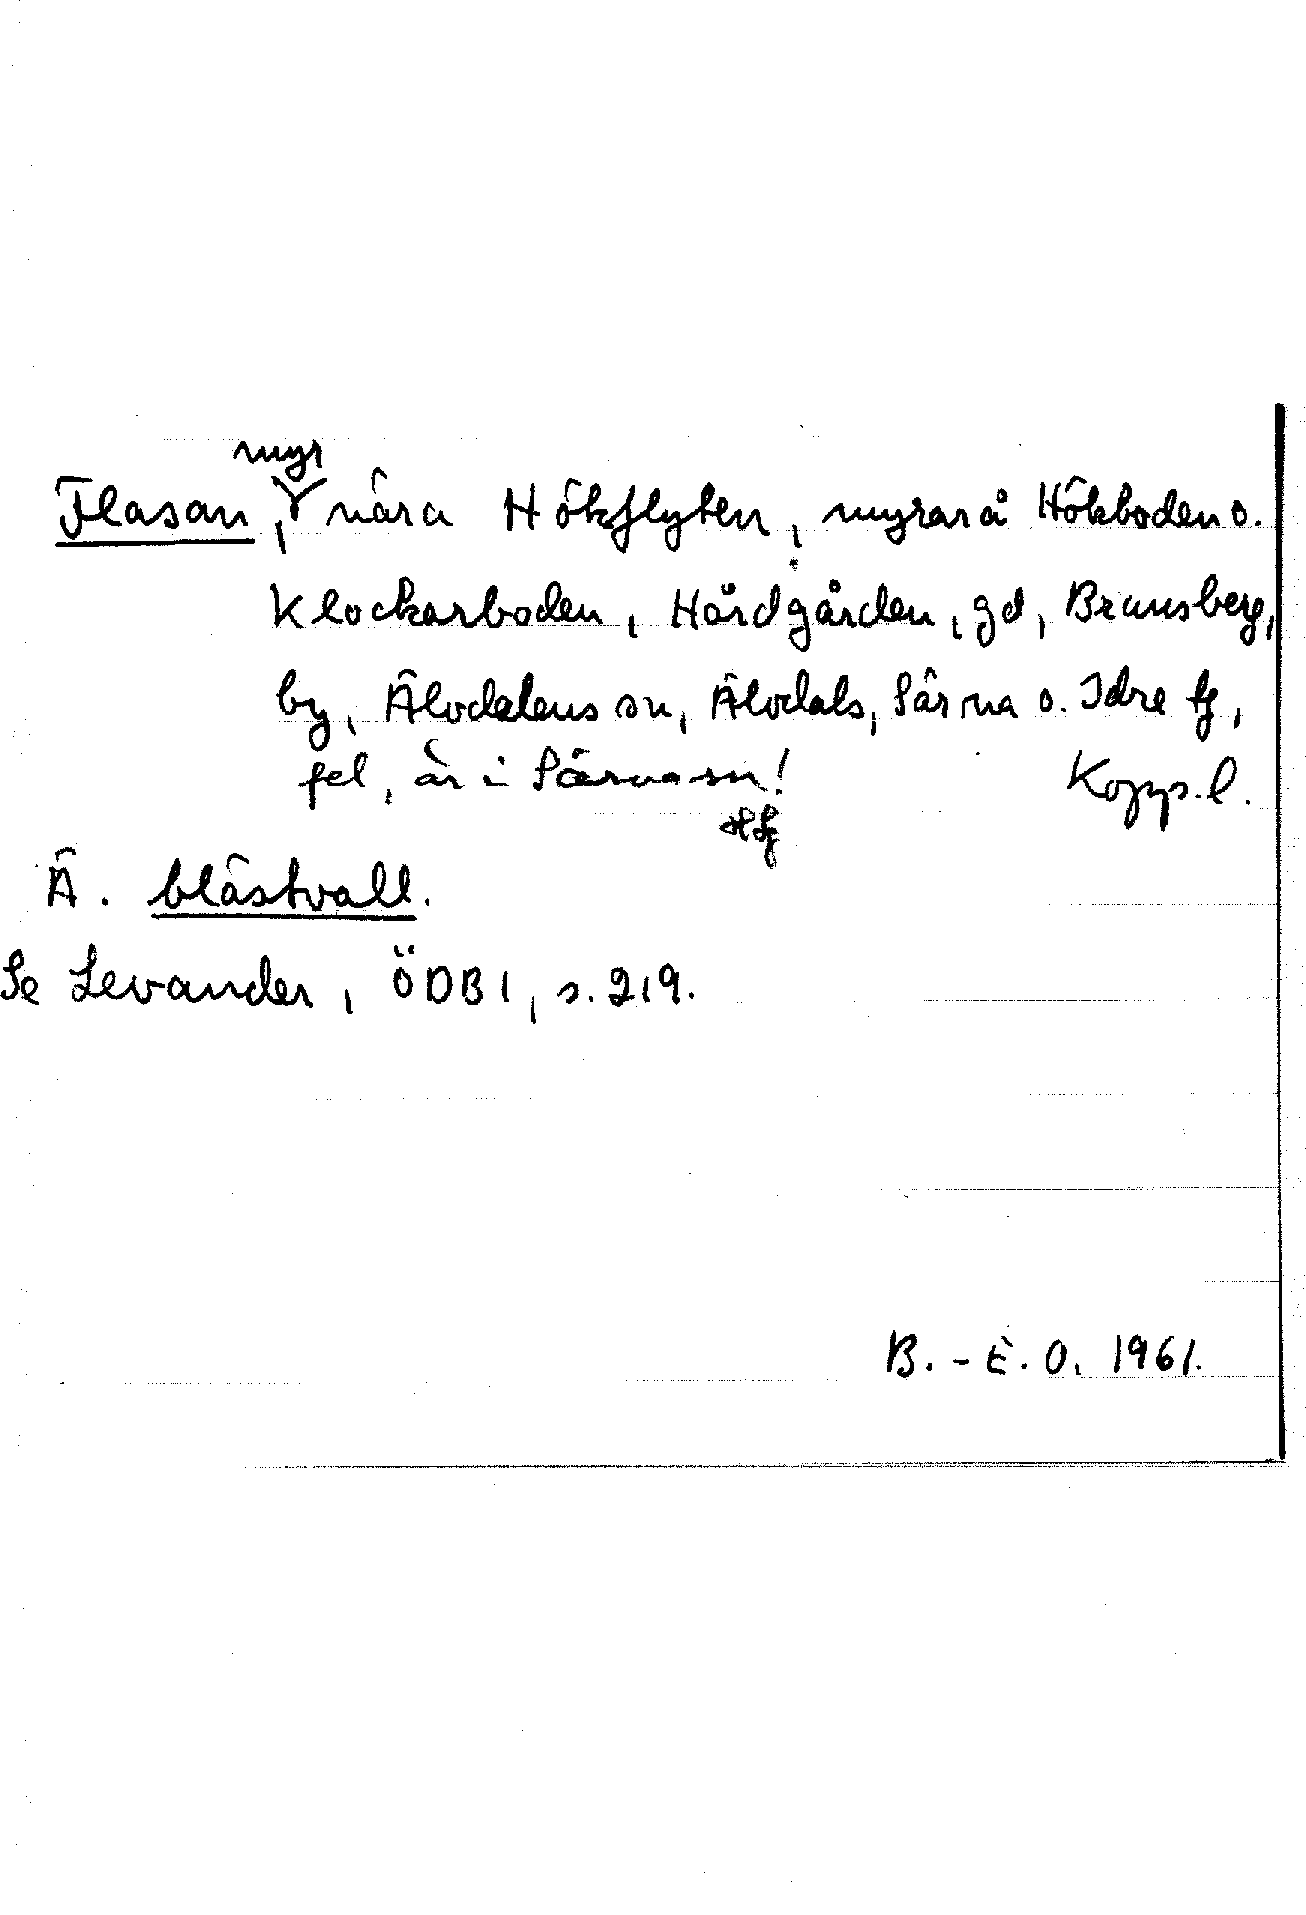 Flasan, myr nära Hökflyten, myrar å Hökboden o.
Klockarboden, Hårdgården, gd, Brunsberg,
by, Älvdalens sn, Älvdals, Särna o. Idre tg,
fel, är i Särna sn! Kopps. l.
Ä. blästvall.
Se Levander, ÖDB I, s. 219.
B.-E. O. 1961.